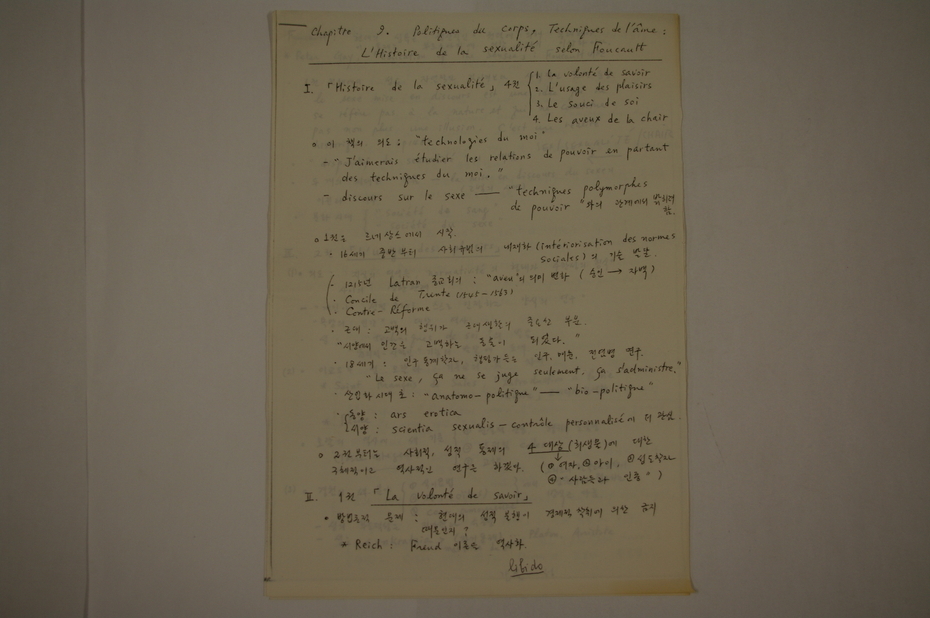 Chapitre 9. Politiques du corps, Techniques de l'âme :
L'Histoire de la sexualité selon Foucault
I. 「Histoire de la sexualité」 4권
1. La volonté de savoir
2. L'usage des plaisirs
3. Le souci de soi
4. Les aveux de la chair
o 이 책의 의도 : "technologies du moi"
- "J'aimerais étudier les relations de pouvoir en partant
des techniques du moi."
- discours sur le sexe — "techniques polymorphes
de pouvoir"와의 관계에서 밝히려
함.
o 1권은 르네상스에서 시작.
· 16세기 중반부터 사회규범의 내재화 (intériorisation des normes
sociales)의 기술 발달.
· 1215년 Latran 종교회의 : "aveu"의 의미 변화 (승인 → 자백)
· Concile de Trente (1545-1563)
· Contre-Réforme
· 근대 : 고백의 행위가 근대생활의 중심적 부분.
"서양에서 인간은 고백하는 동물이 되었다."
· 18세기 : 인구통계학자, 행정가들은 인구, 매춘, 전염병 연구.
"Le sexe, ça ne se juge seulement, ça s'administre."
· 산업화 시대 : "anatomo-politique" — "bio-politique"
· 동양 : ars erotica
서양 : scientia sexualis - contrôle personnalisé에 의 관심.
o 2권부터는 사회적, 성적 통제의 4 대상 (희생물)에 대한
구체적이고 역사적인 연구를 하겠다. (① 여자, ② 아이, ③
④ "사람들과 인종")
II. 1권 「La volonté de savoir」
• 방법론적 문제 : 현대의 성적 불행이 경제적 착취에 의한 금지
때문인지?
* Reich : Freud 이론을 역사화.
libido